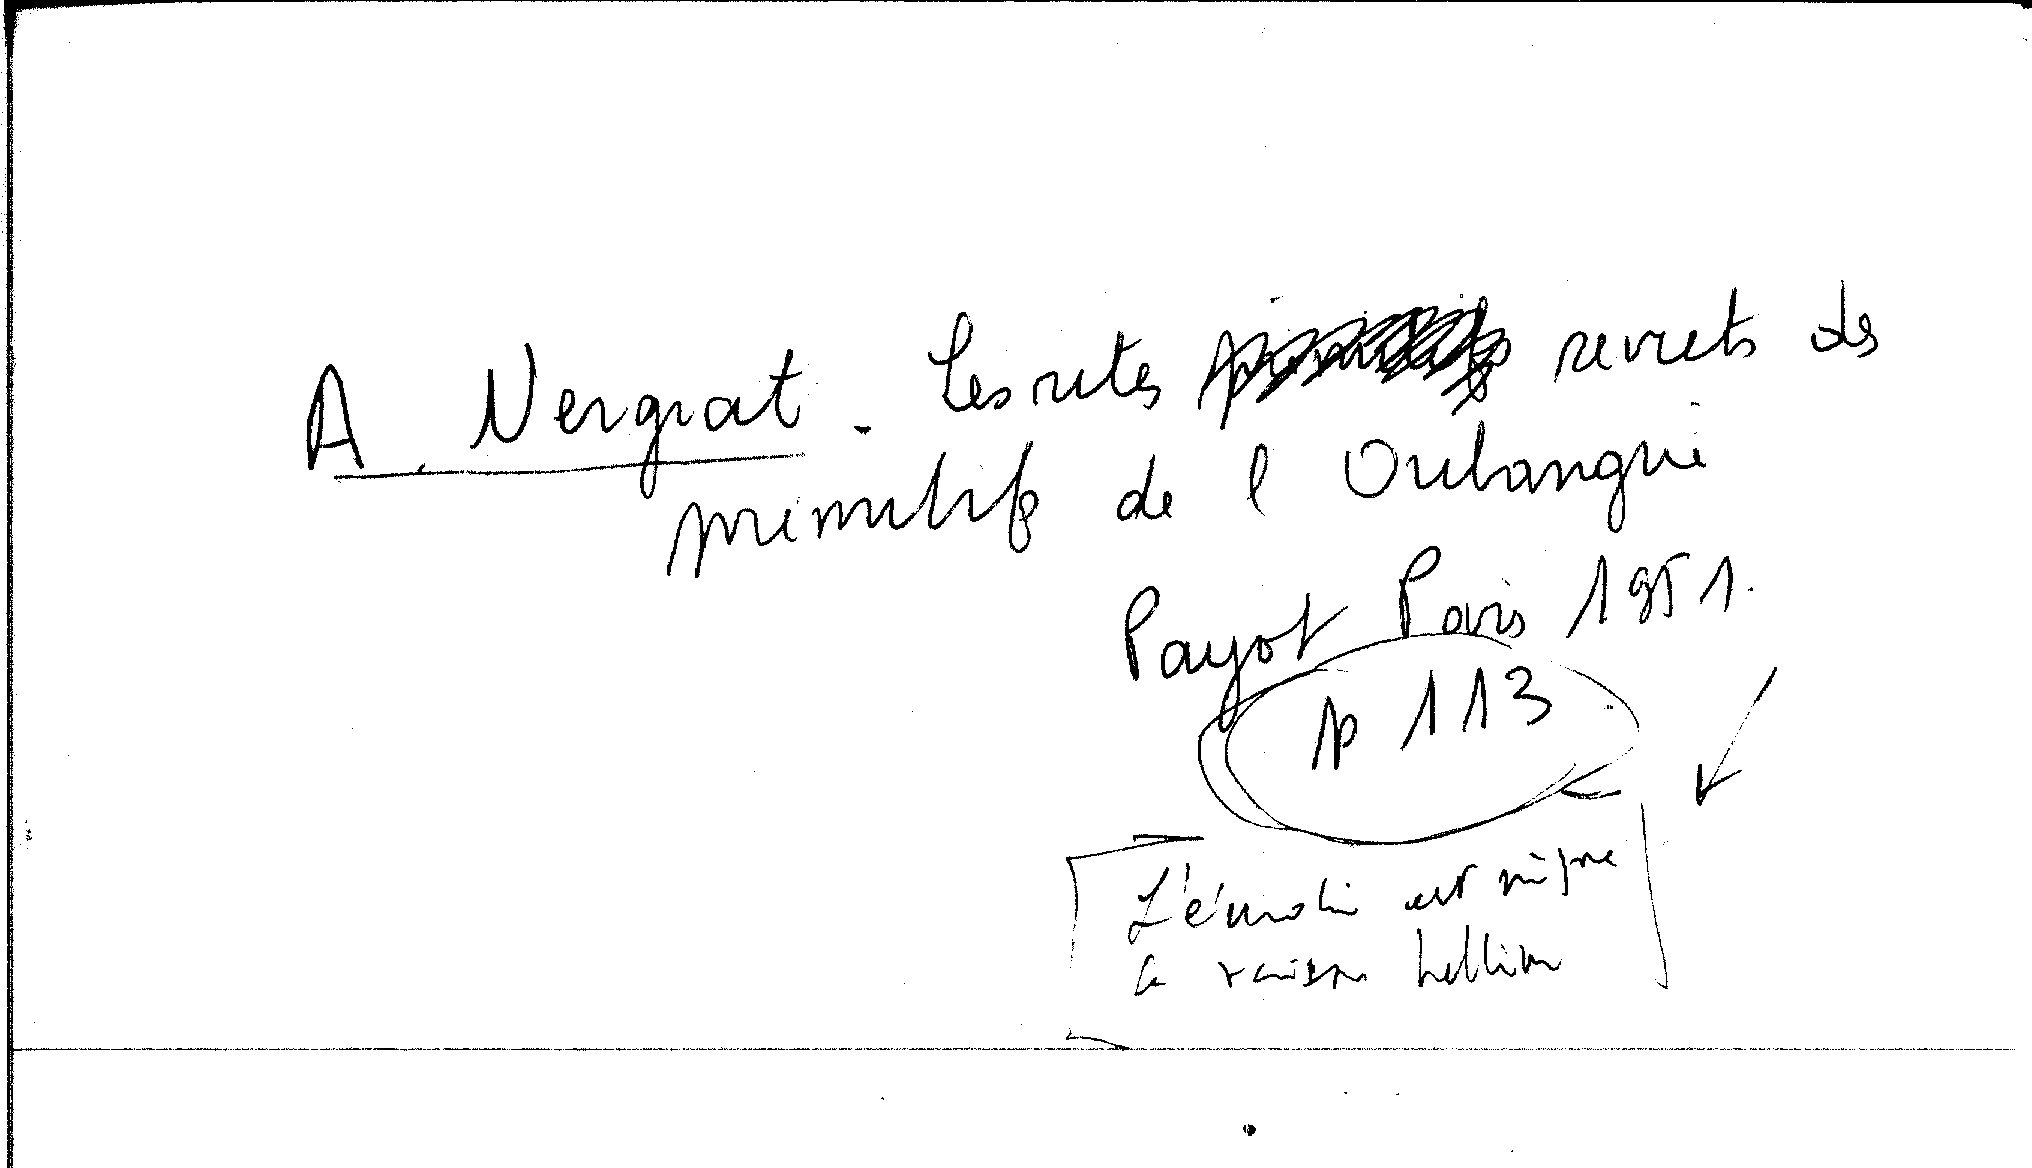 A. Vergiat. Les rites secrets des
primitifs de l Oubangui
Payot Paris 1951.
p 113
L'émotion est nègre
la raison hellène